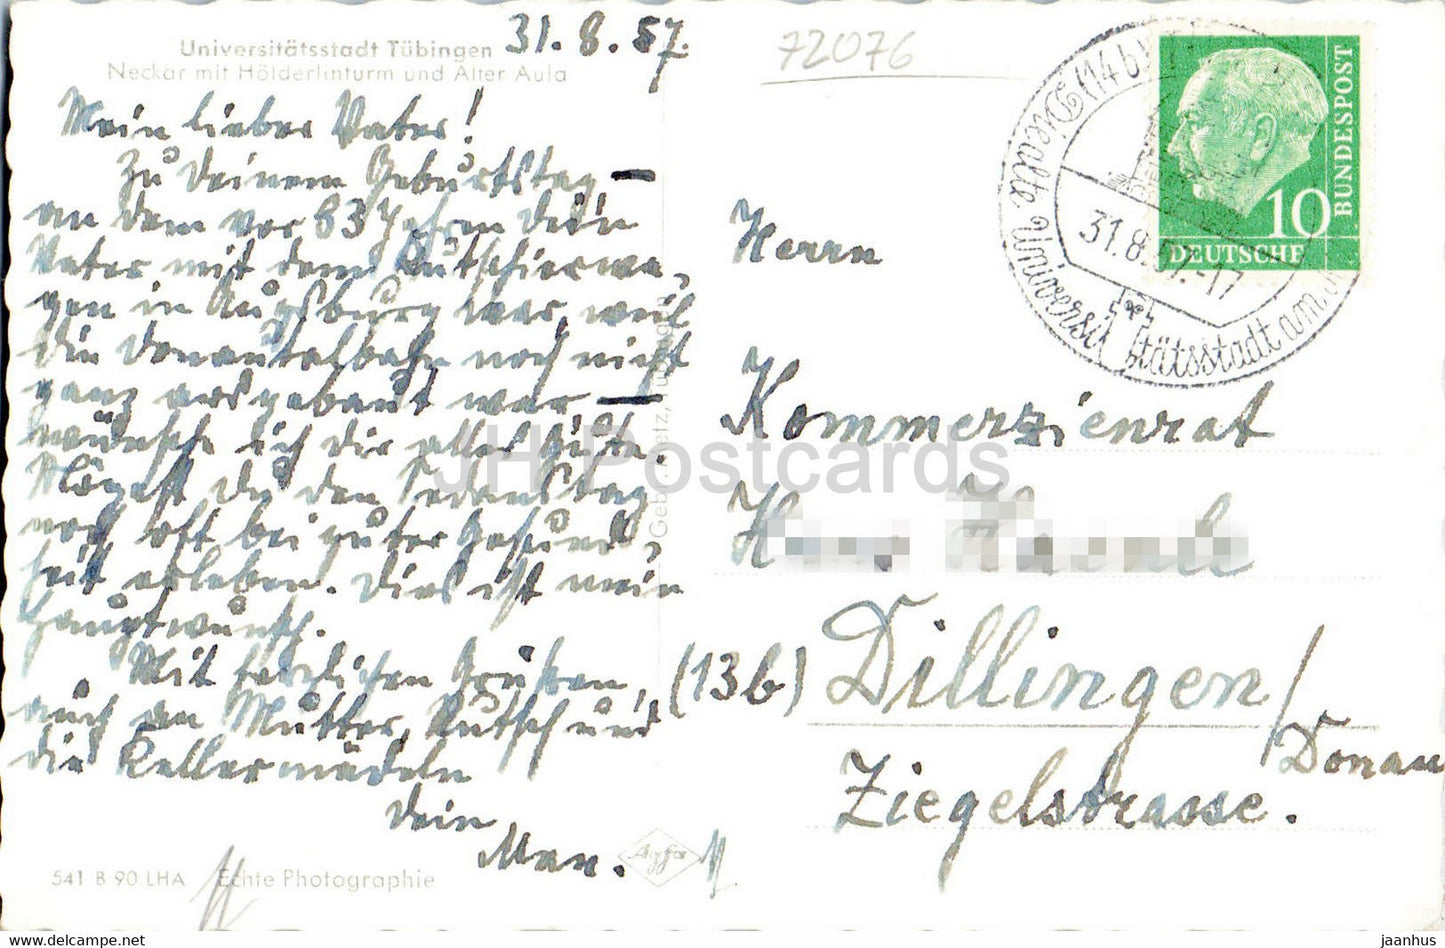 Universitätsstadt Tübingen
Neckar mit Hölderlinturm und Alter Aula
31. 8. 57.
Mein lieber Vater!
Zu Deinem Geburtstag, —
an dem vor 83 Jahren Dein
Vater mit dem Kutschierwa-
gen in Augsburg war, weil
die Donautalbahn noch nicht
ganz ausgebaut war —
wünsche ich Dir alles Gute.
Mögest Du den Sedanstag
noch oft bei guter Gesund-
heit erleben. Dies ist mein
Hauptwunsch.
Mit herzlichen Grüßen,
auch an Mutter, und
die Kellermädeln
Dein
Max.
541 B 90 LHA Echte Photographie
Agfa
Gebr. Metz, Tübingen
72076
Herrn
Kommerzienrat
(13b) Dillingen/
Donau
Ziegelstrasse.
(14b)
Die alte Universitätsstadt am
31.8.57.-17
10
DEUTSCHE
BUNDESPOST
JH Postcards
hippostcard.com
jaanhus